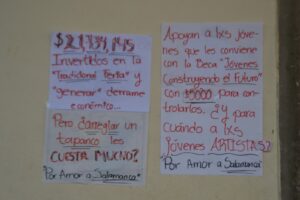 $21,939,145
Invertidos en la
"Tradicional Feria" y
"generar" derrame
económico...
Pero ¿arreglar un
tapanco les
CUESTA MUCHO?
"Por Amor a Salamanca"
Apoyan a lxs jóve-
nes que les conviene
con la Beca "Jóvenes
Construyendo el Futuro"
con $5000 para
controlarlos. ¿y para
cuándo a lxs
jóvenes ARTISTAS?
"Por Amor a Salamanca"